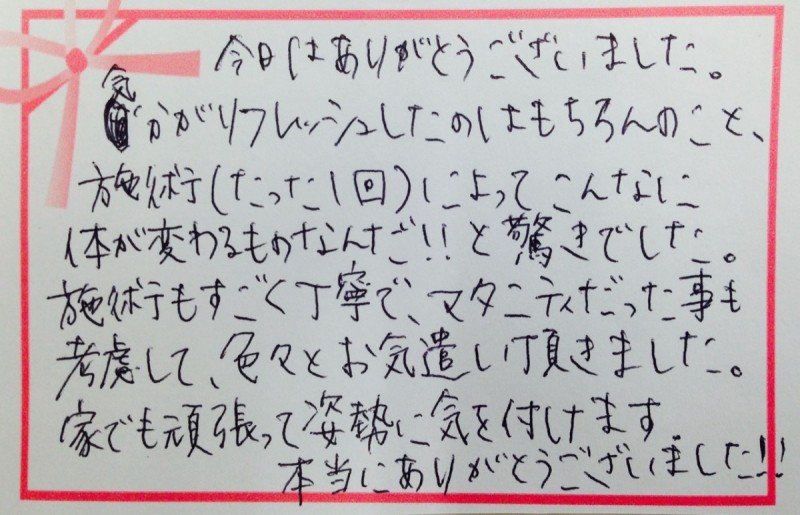 今日はありがとうございました。
気分がリフレッシュしたのはもちろんのこと、
施術(たった1回)によってこんなに
体が変わるものなんだ!!と驚きでした。
施術もすごく丁寧で、マタニティだった事も
考慮して、色々とお気遣い頂きました。
家でも頑張って姿勢に気を付けます
本当にありがとうございました!!